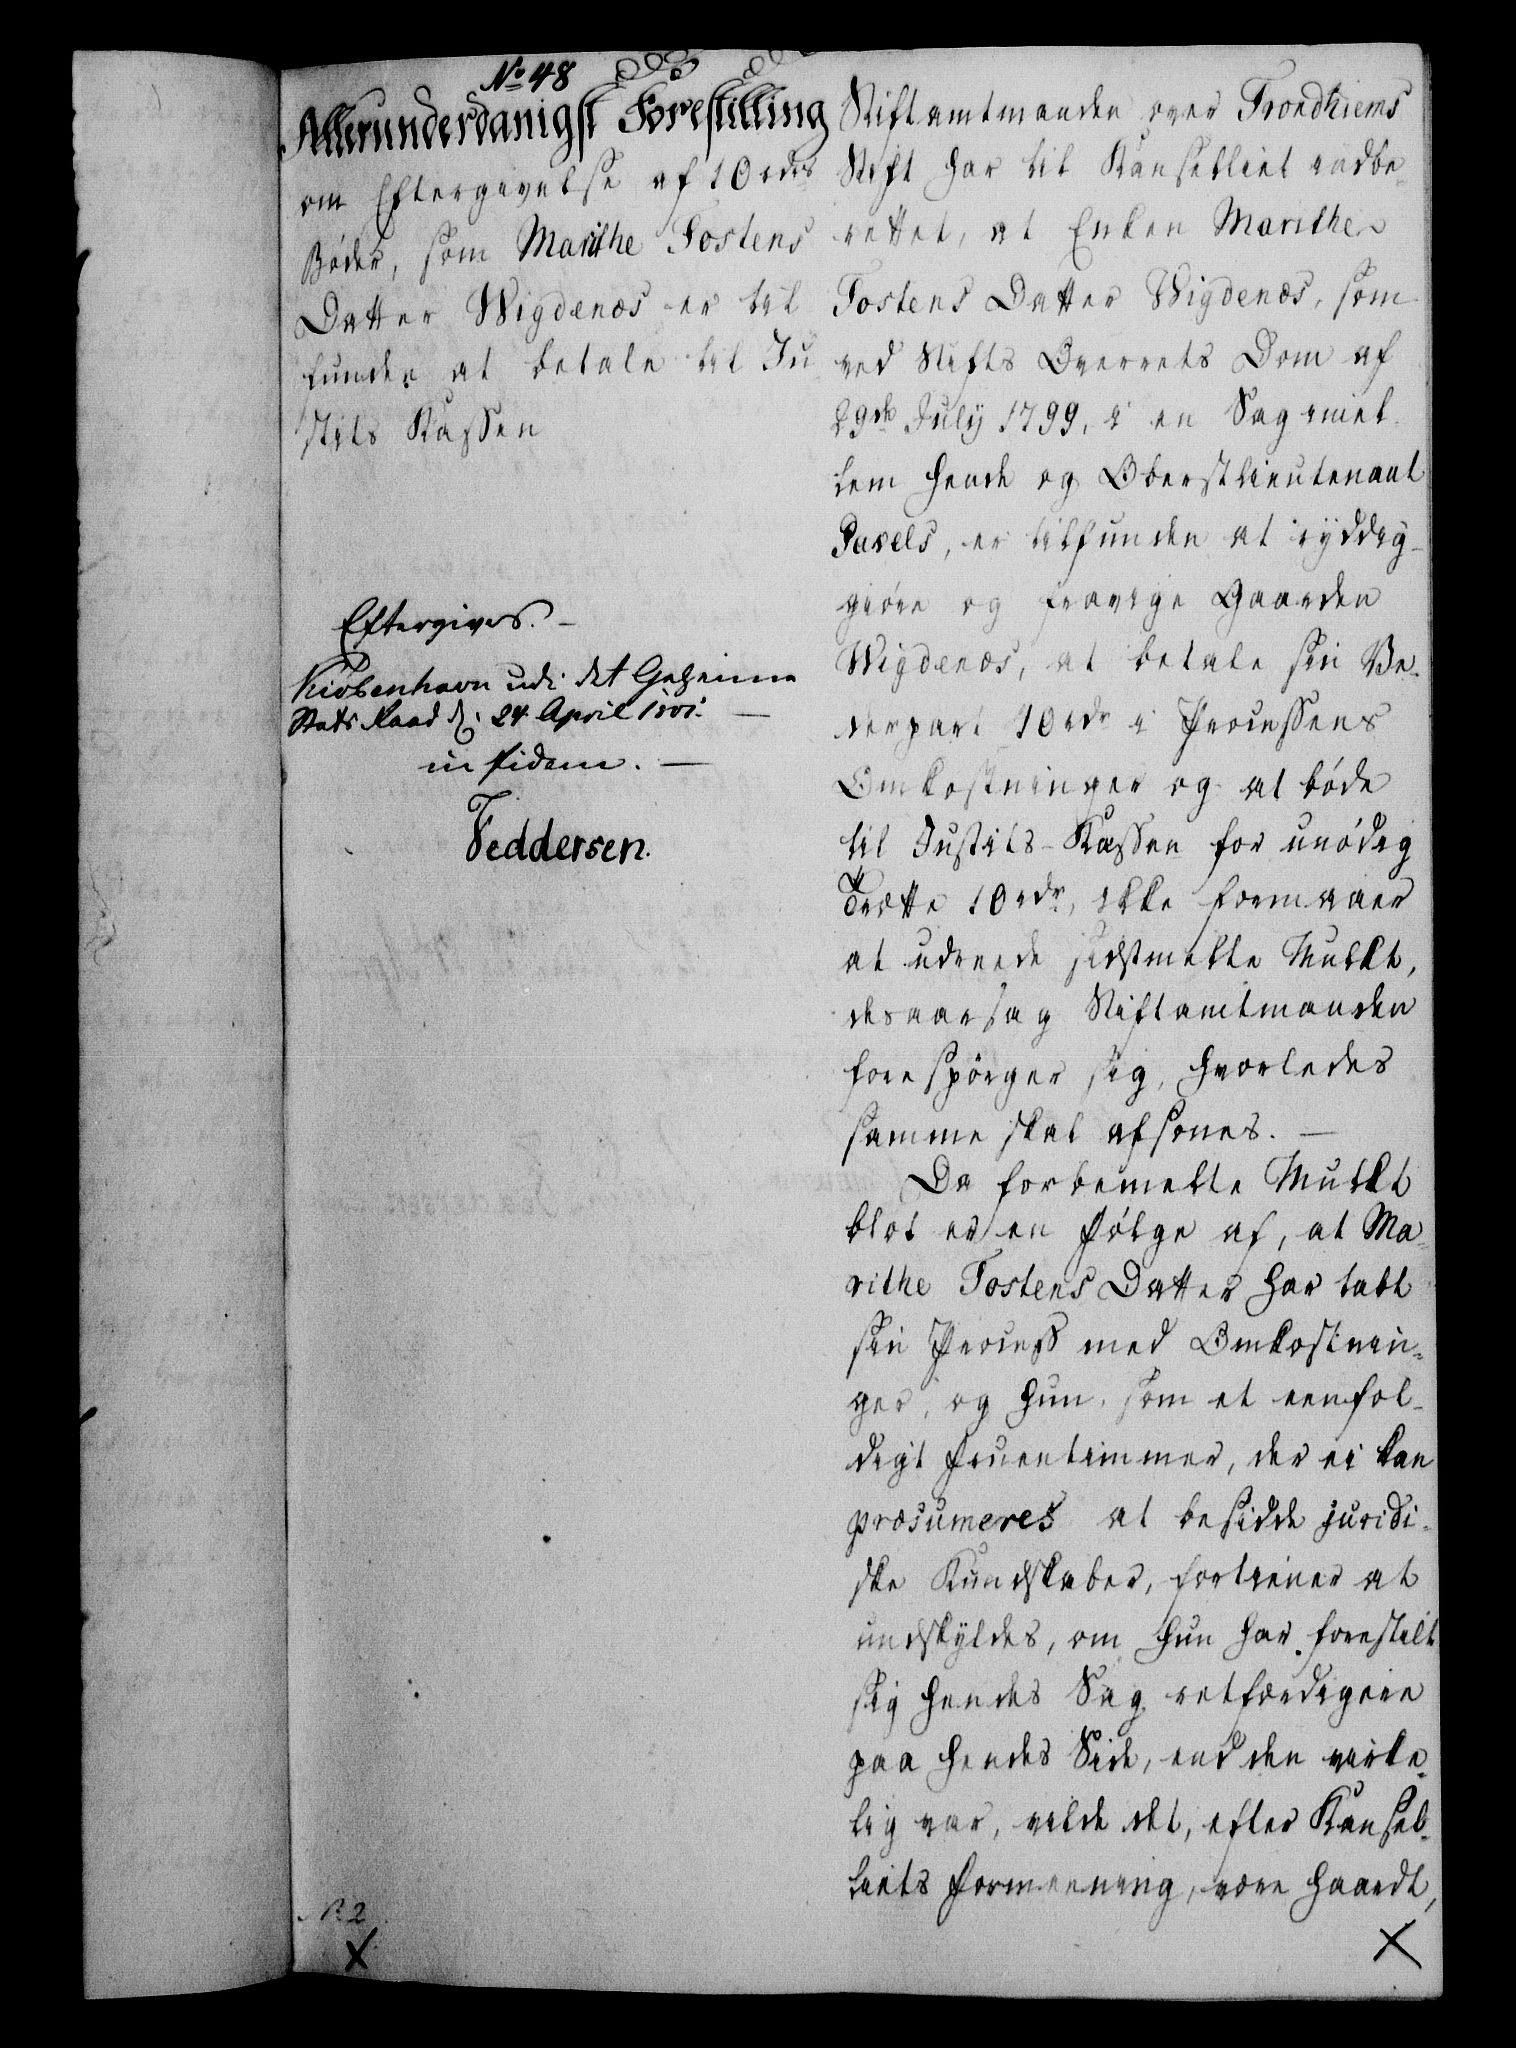 No 48
Allerunderdanigst Forestilling
om Eftergivelse af 10 rdrs
Bøder, som Marithe Tostens
Datter Wigdenæs er til
funden at betale til Ju
stits Kassen
Eftergives. —
Kiøbenhavn udi det Geheime
Stats Raad d: 24 April 1801. —
in fidem. —
Feddersen.
N. 2
Stiftamtmanden over Trondhiems
Stift har til Kanselliet indbe-
rettet, at Enken Marithe
Tostens Datter Wigdenæs, som
ved Stifts Overrets Dom af
29de July 1799, i en Sag imel-
lem hende og Oberstlieutenant
Pavels, er tilfunden at ryddig-
giøre og fravige Gaarden
Wigdenæs, at betale sin Ve-
derpart 10 rdr i Processens
Omkostninger og at bøde
til Justits-Kassen for unødig
Trætte 10 rdr, ikke formaaer
at udreede sidstmelte Mulkt,
desaarsag Stiftamtmanden
forespørger sig, hvorledes
samme skal afsones. —
Da forbemelte Mulkt
blot er en Følge af, at Ma-
rithe Tostens Datter har tabt
sin Process med Omkostnin-
ger, og hun, som et eenfol-
digt Fruentimmer, der ei kan
præsumeres at besidde juridi-
ske Kundskaber, fortiener at
undskyldes, om hun har forestilt
sig hendes Sag retfærdigere
paa hendes Side, end den virke-
lig var, vilde det, efter Kansel-
liets Formeening, være haardt,